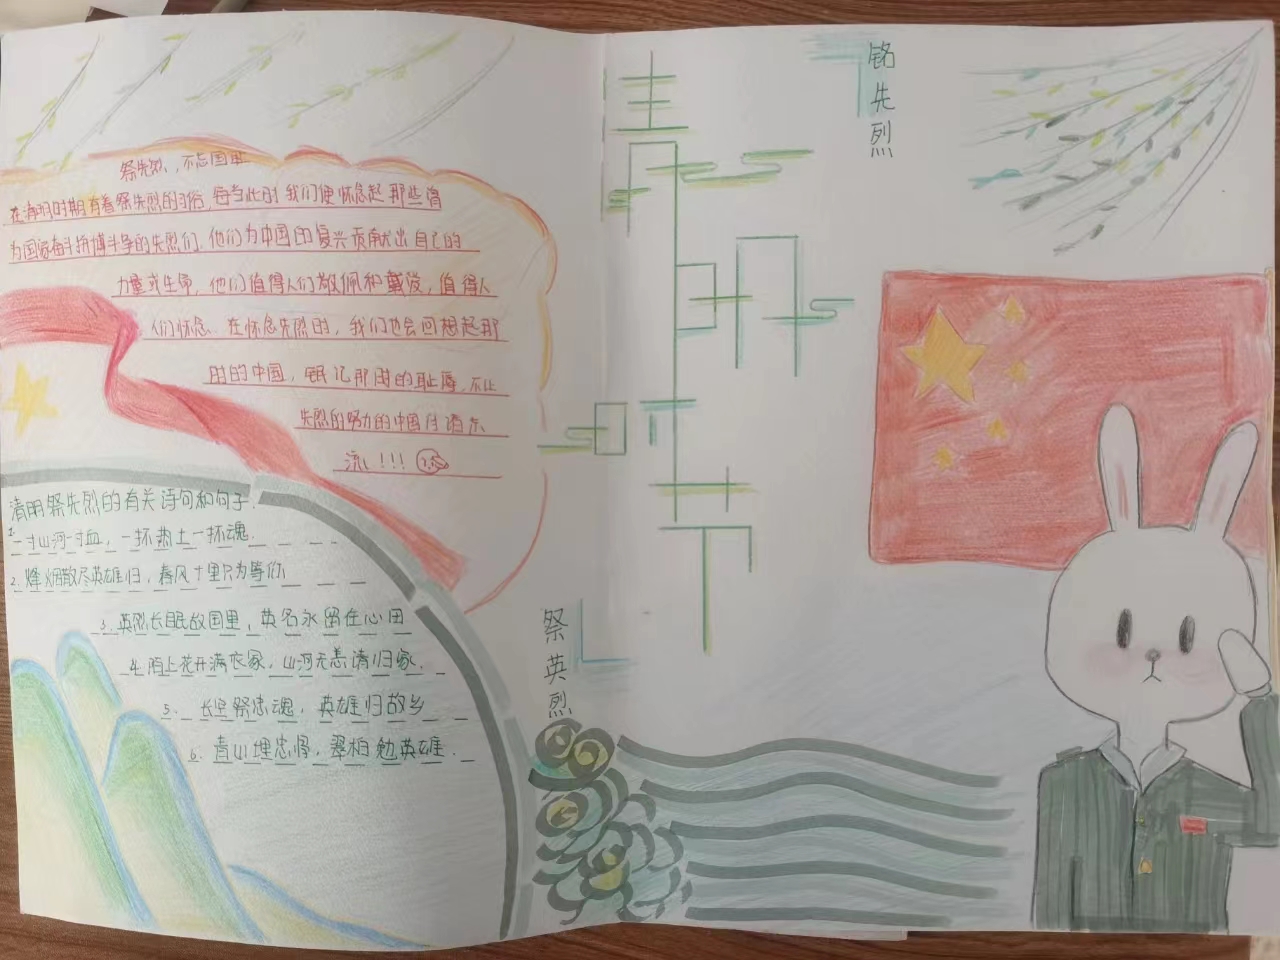 祭先烈，不忘国耻
在清明时期有着祭先烈的习俗，每当此时我们便怀念起那些得
为国家奋斗拼博斗争的先烈们，他们为中国的复兴贡献出自己的
力量或生命，他们值得人们敬佩和戴发，值得人
们怀念、在怀念先烈时，我们也会回想起那
时的中国，银记那时的耻辱，不让
先烈的努力的中国付诸东
流！!!!
清明祭先烈的有关诗句和句子.
1.一寸山河一寸血，一抔热土一抔魂.
2.烽烟散尽英雄归，春风十里只为等你
3.英烈长眠故国里，英名永留住心田
4.陌上花开满依家，山河无恙请归家.
5. 长空祭忠魂，英雄归故乡
6.青山埋忠骨，翠柏勉英雄.
清明
铭先烈
祭英烈